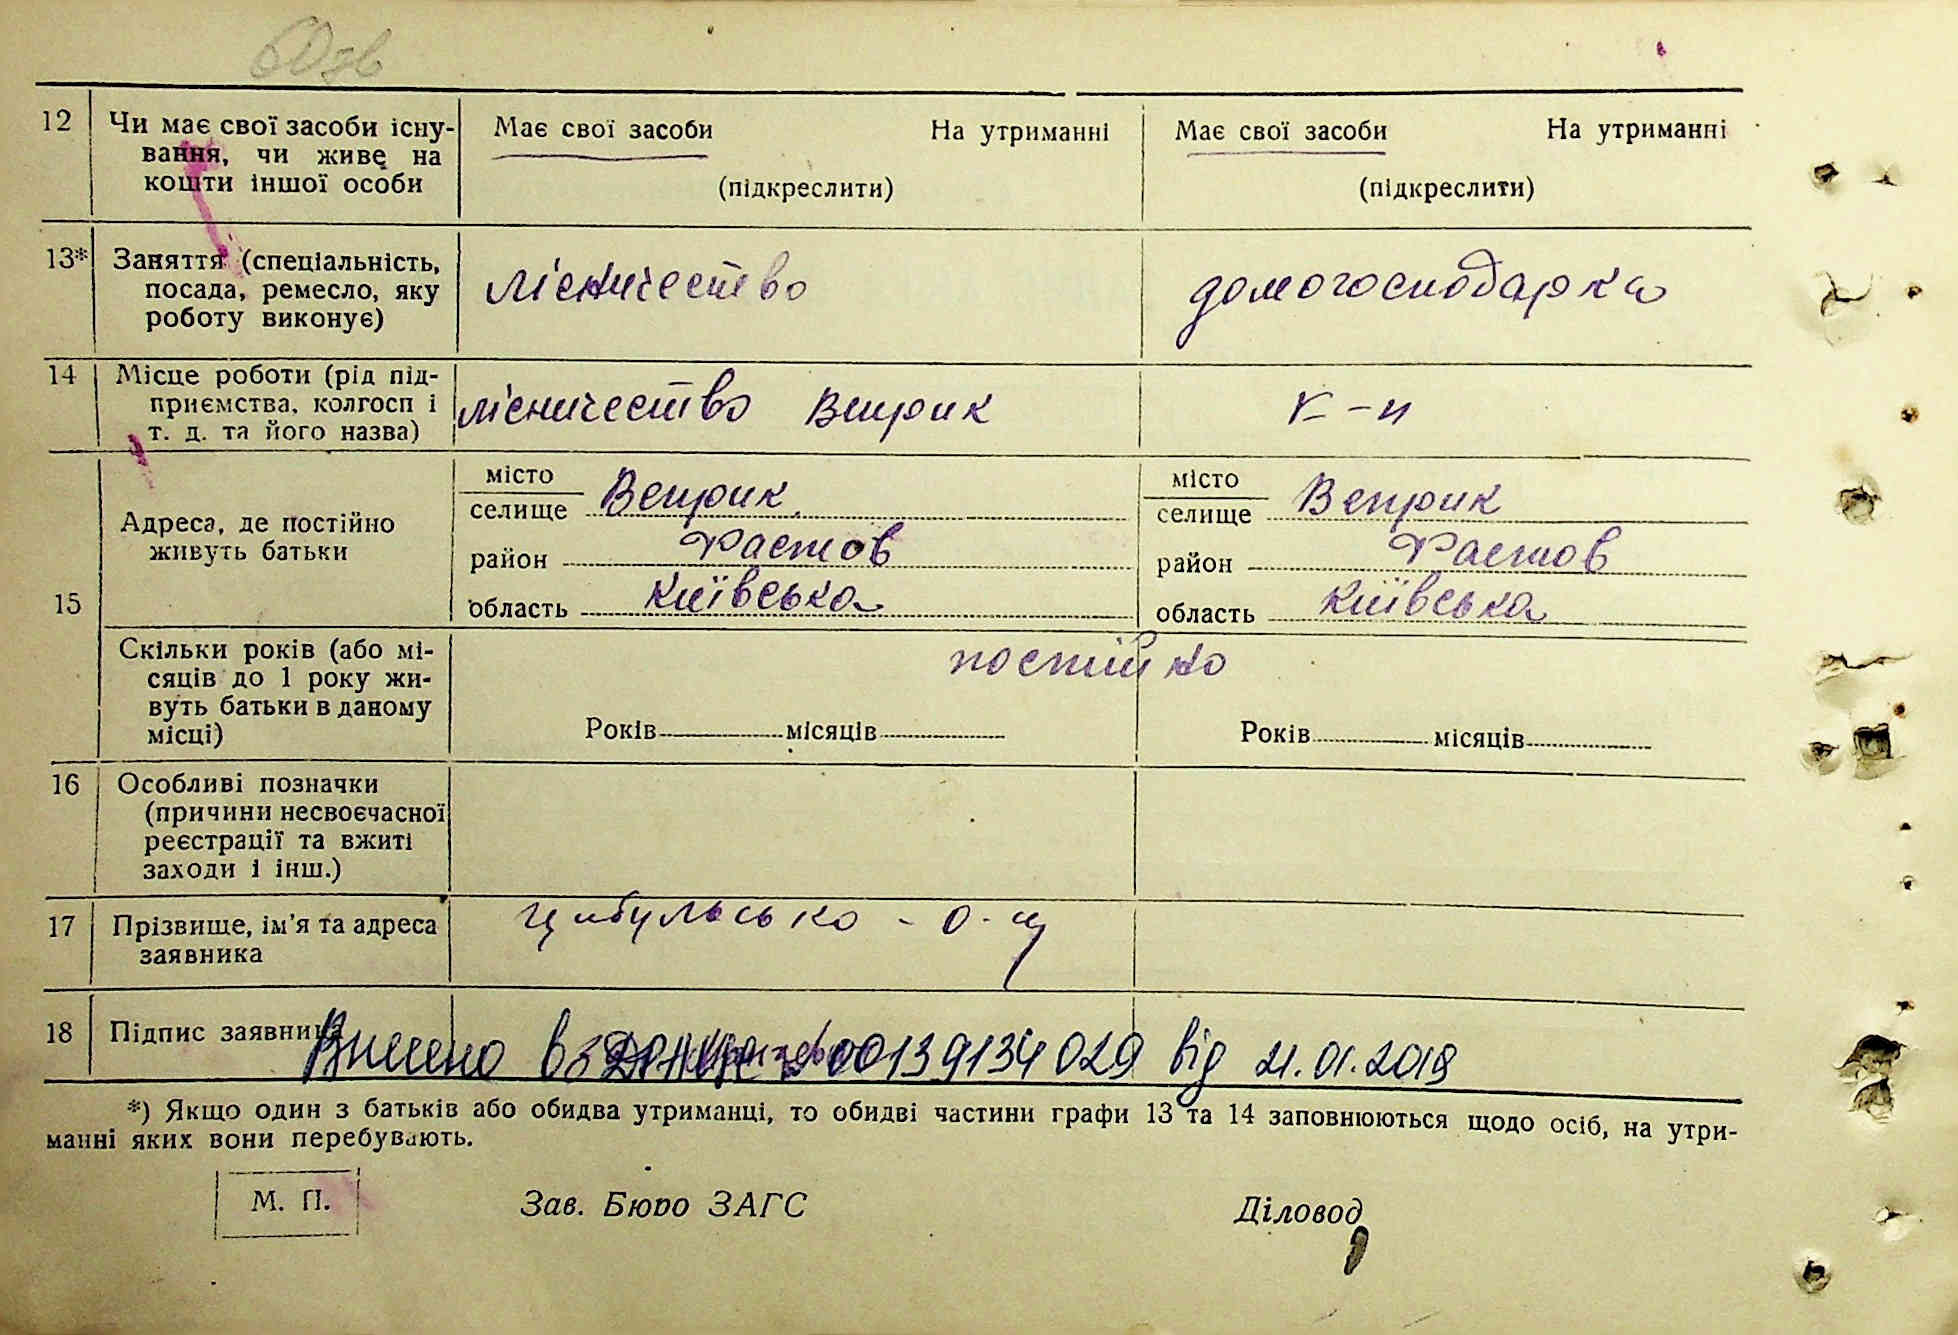 12 Чи має свої засоби існу-
вання, чи живе на
кошти іншої особи
Має свої засоби На утриманні
(підкреслити)
Має свої засоби На утриманні
(підкреслити)
13* Заняття (спеціальність,
посада, ремесло, яку
роботу виконує)
лісничество
домогосподарка
14 Місце роботи (рід під-
приємства, колгосп і
т. д. та його назва)
лісничество Веприк
к-п
15 Адреса, де постійно
живуть батьки
місто
селище Веприк
район Фастов
область Київська
місто
селище Веприк
район Фастов
область Київська
Скільки років (або мі-
сяців до 1 року жи-
вуть батьки в даному
місці)
постійно
Років місяців
Років місяців
16 Особливі позначки
(причини несвоєчасної
реєстрації та вжиті
заходи і інш.)
17 Прізвище, ім'я та адреса
заявника
Цибульсько - о-ц
18 Підпис заявника
Внесено в 00139134029 від 21.01.2019
*) Якщо один з батьків або обидва утриманці, то обидві частини графи 13 та 14 заповнюються щодо осіб, на утри-
манні яких вони перебувають.
М. П.
Зав. Бюро ЗАГС
Діловод